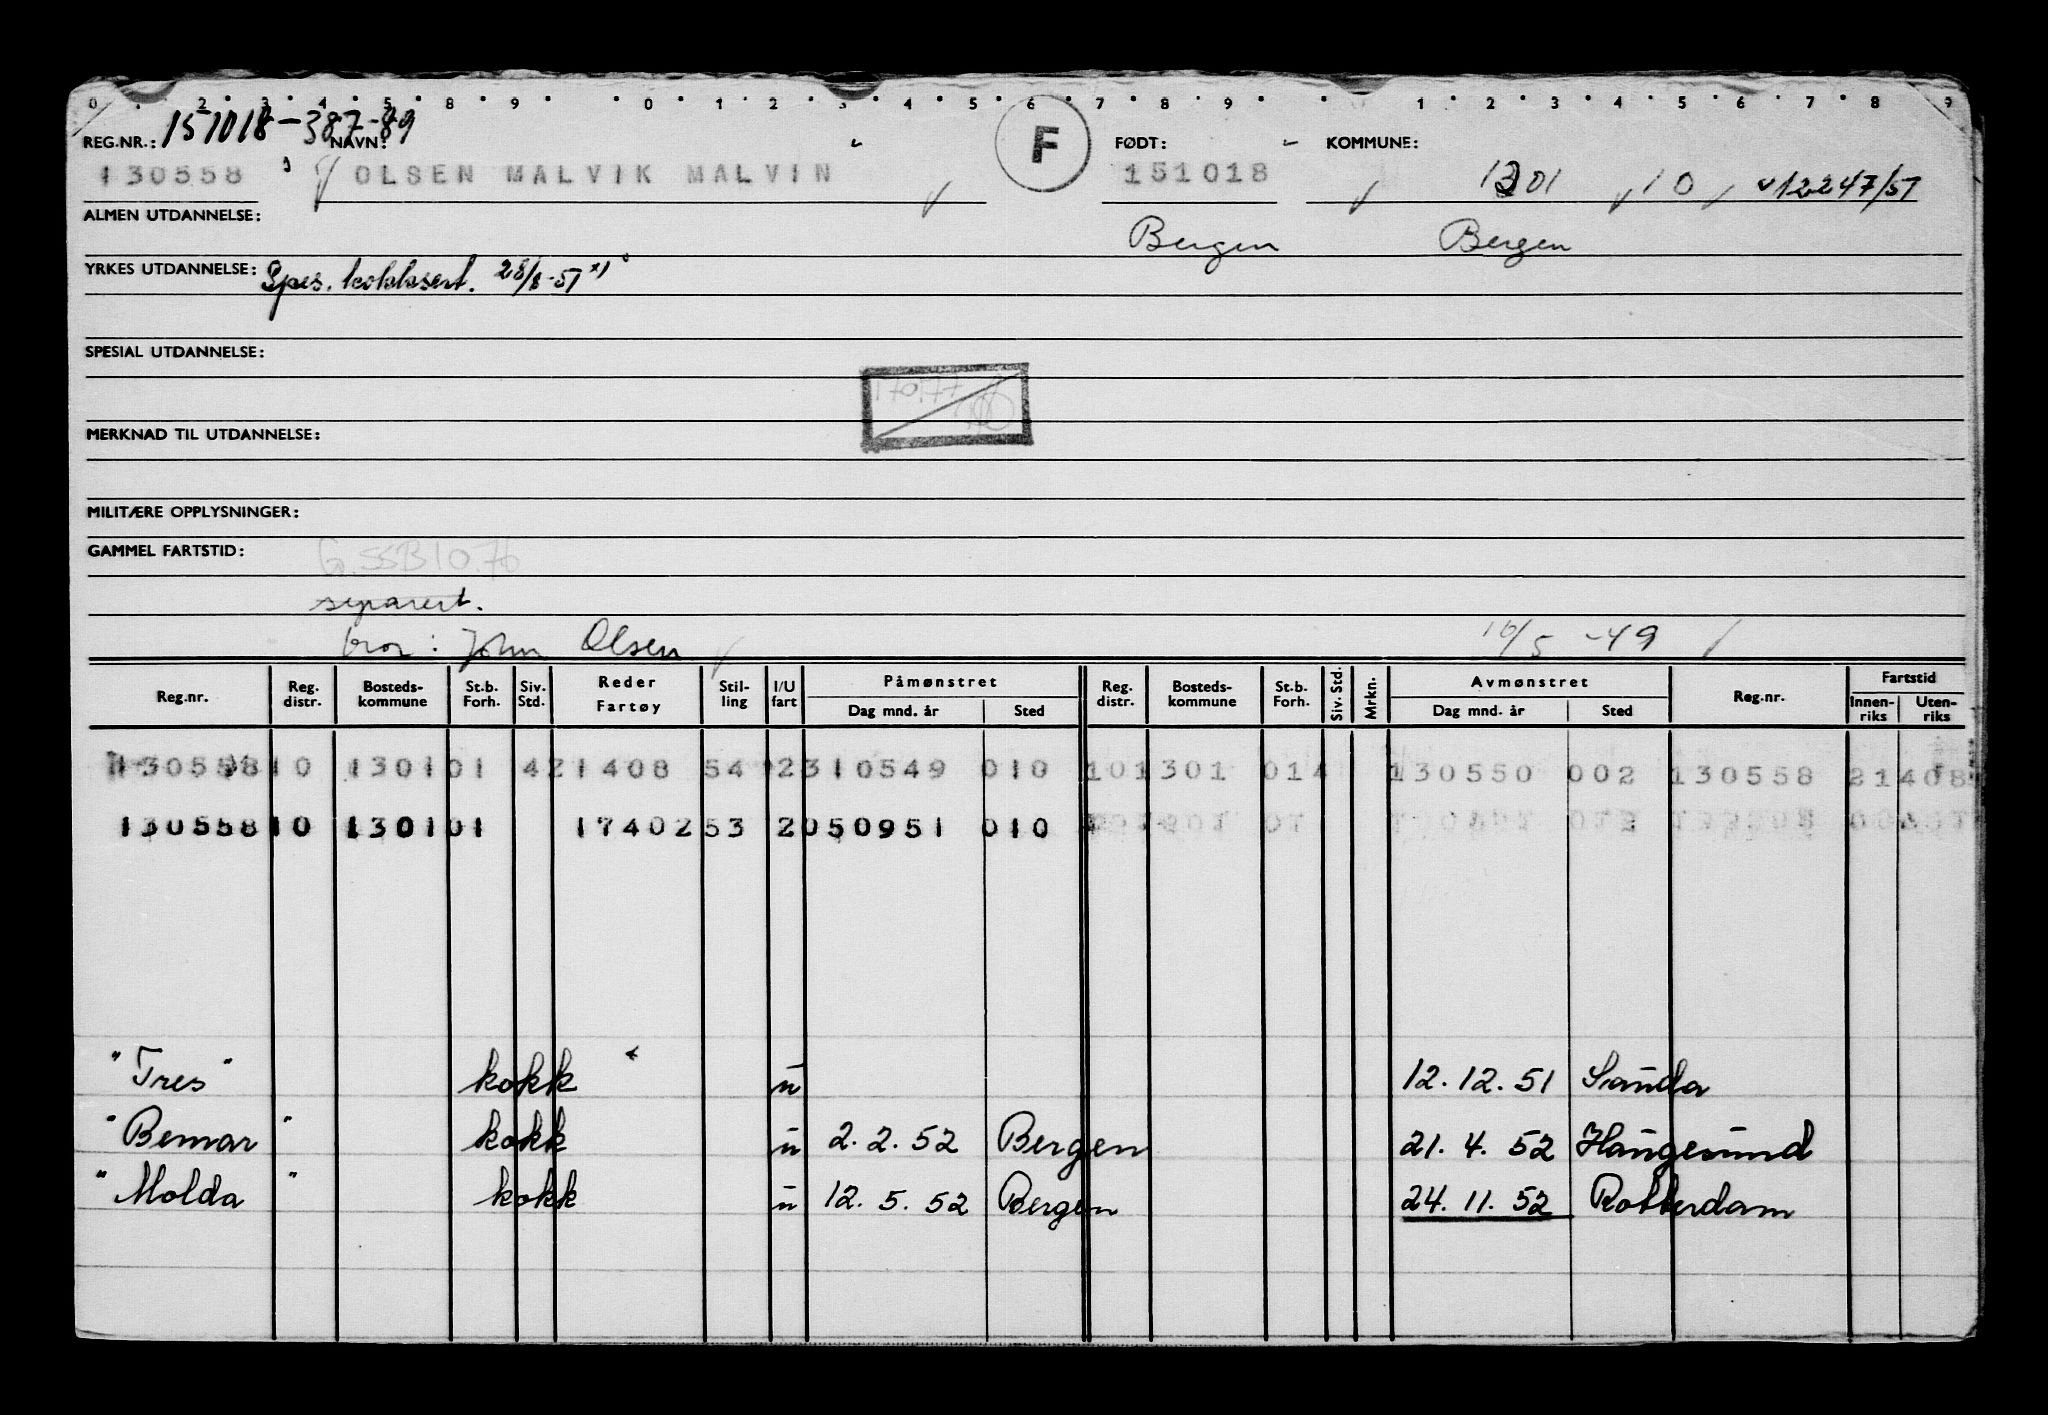 0 2 3 4 5 8 9 0 1 2 3 4 5 6 7 8 9 1 2 3 4 5 6 7 8 9
REG.NR.: 151018-387-89 NAVN: F FØDT: KOMMUNE:
130558 OLSEN MALVIK MALVIN 151018 1301 10 12247/51
ALMEN UTDANNELSE: Bergen Bergen
YRKES UTDANNELSE: Spes. kokksert. 28/8-51 x)
SPESIAL UTDANNELSE:
MERKNAD TIL UTDANNELSE:
MILITÆRE OPPLYSNINGER:
GAMMEL FARTSTID: G.SSB10.76
separert.
bror: John Olsen 10/5 -49
Reg.nr. Reg. distr. Bosteds- kommune St.b. Forh. Siv. Std. Reder Fartøy Stil- ling I/U fart Påmønstret Dag mnd. år Sted Reg. distr. Bosteds- kommune St.b. Forh. Siv. Std. Mrkn. Avmønstret Dag mnd. år Sted Reg.nr. Fartstid Innen- riks Uten- riks
130558 10 1301 01 4 21408 54 2 310549 010 10 1301 01 4 130550 002 130558 21408
130558 10 1301 01 17402 53 2 050951 010
"Tres" kokk u 12.12.51 Sauda
"Bemar" kokk u 2.2.52 Bergen 21.4.52 Haugesund
"Molda" kokk u 12.5.52 Bergen 24.11.52 Rotterdam